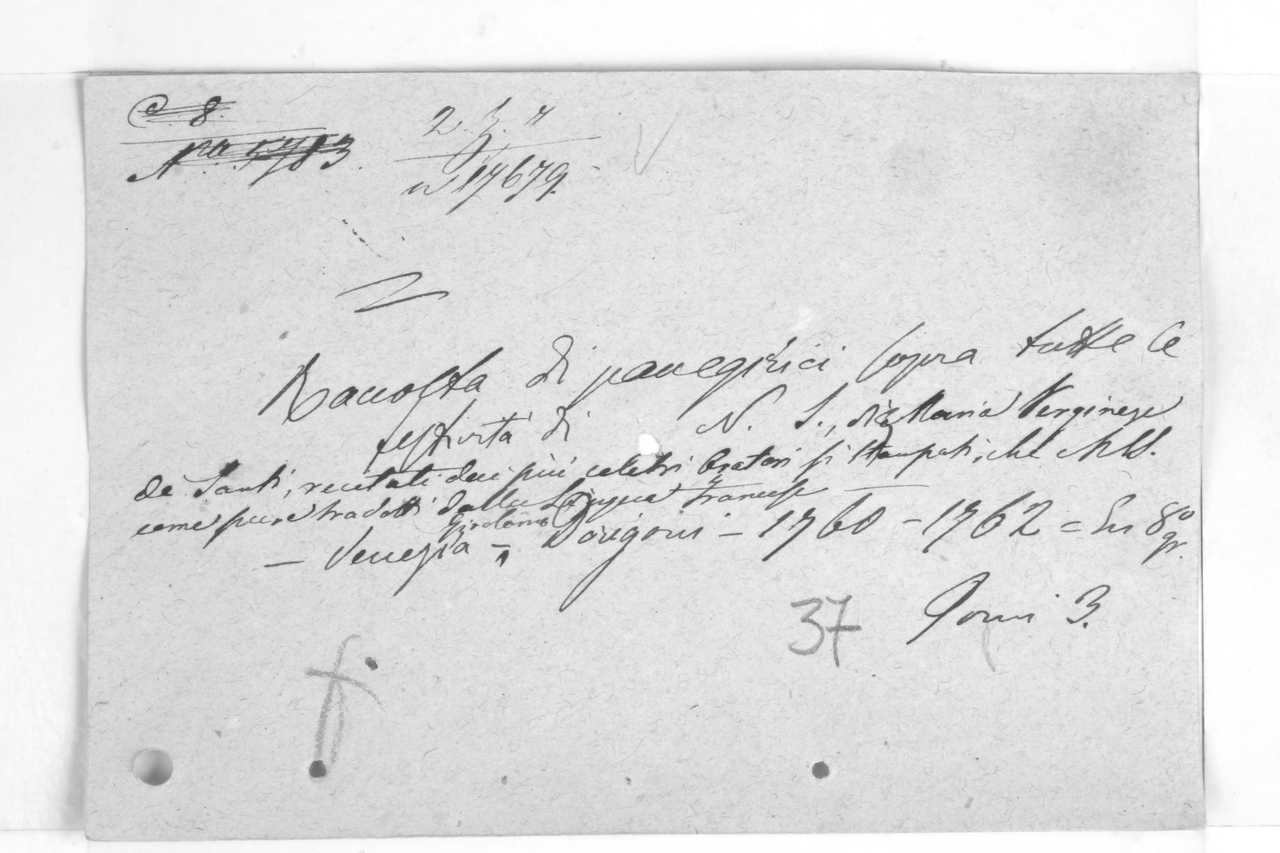 C. 8.
Nro. 1783.
2. 3. 4
17679.
Raccolta di panegirici sopra tutte le
festività di N. S., di Maria Vergine, e
de Santi, recitati dai più celebri Oratori si stampati, che MSS.
come pure tradotti dalla Lingua Francese
Girolamo
– Venezia – Dorigoni – 1760 – 1762 = In 8o gr.
37 Tomi 3.